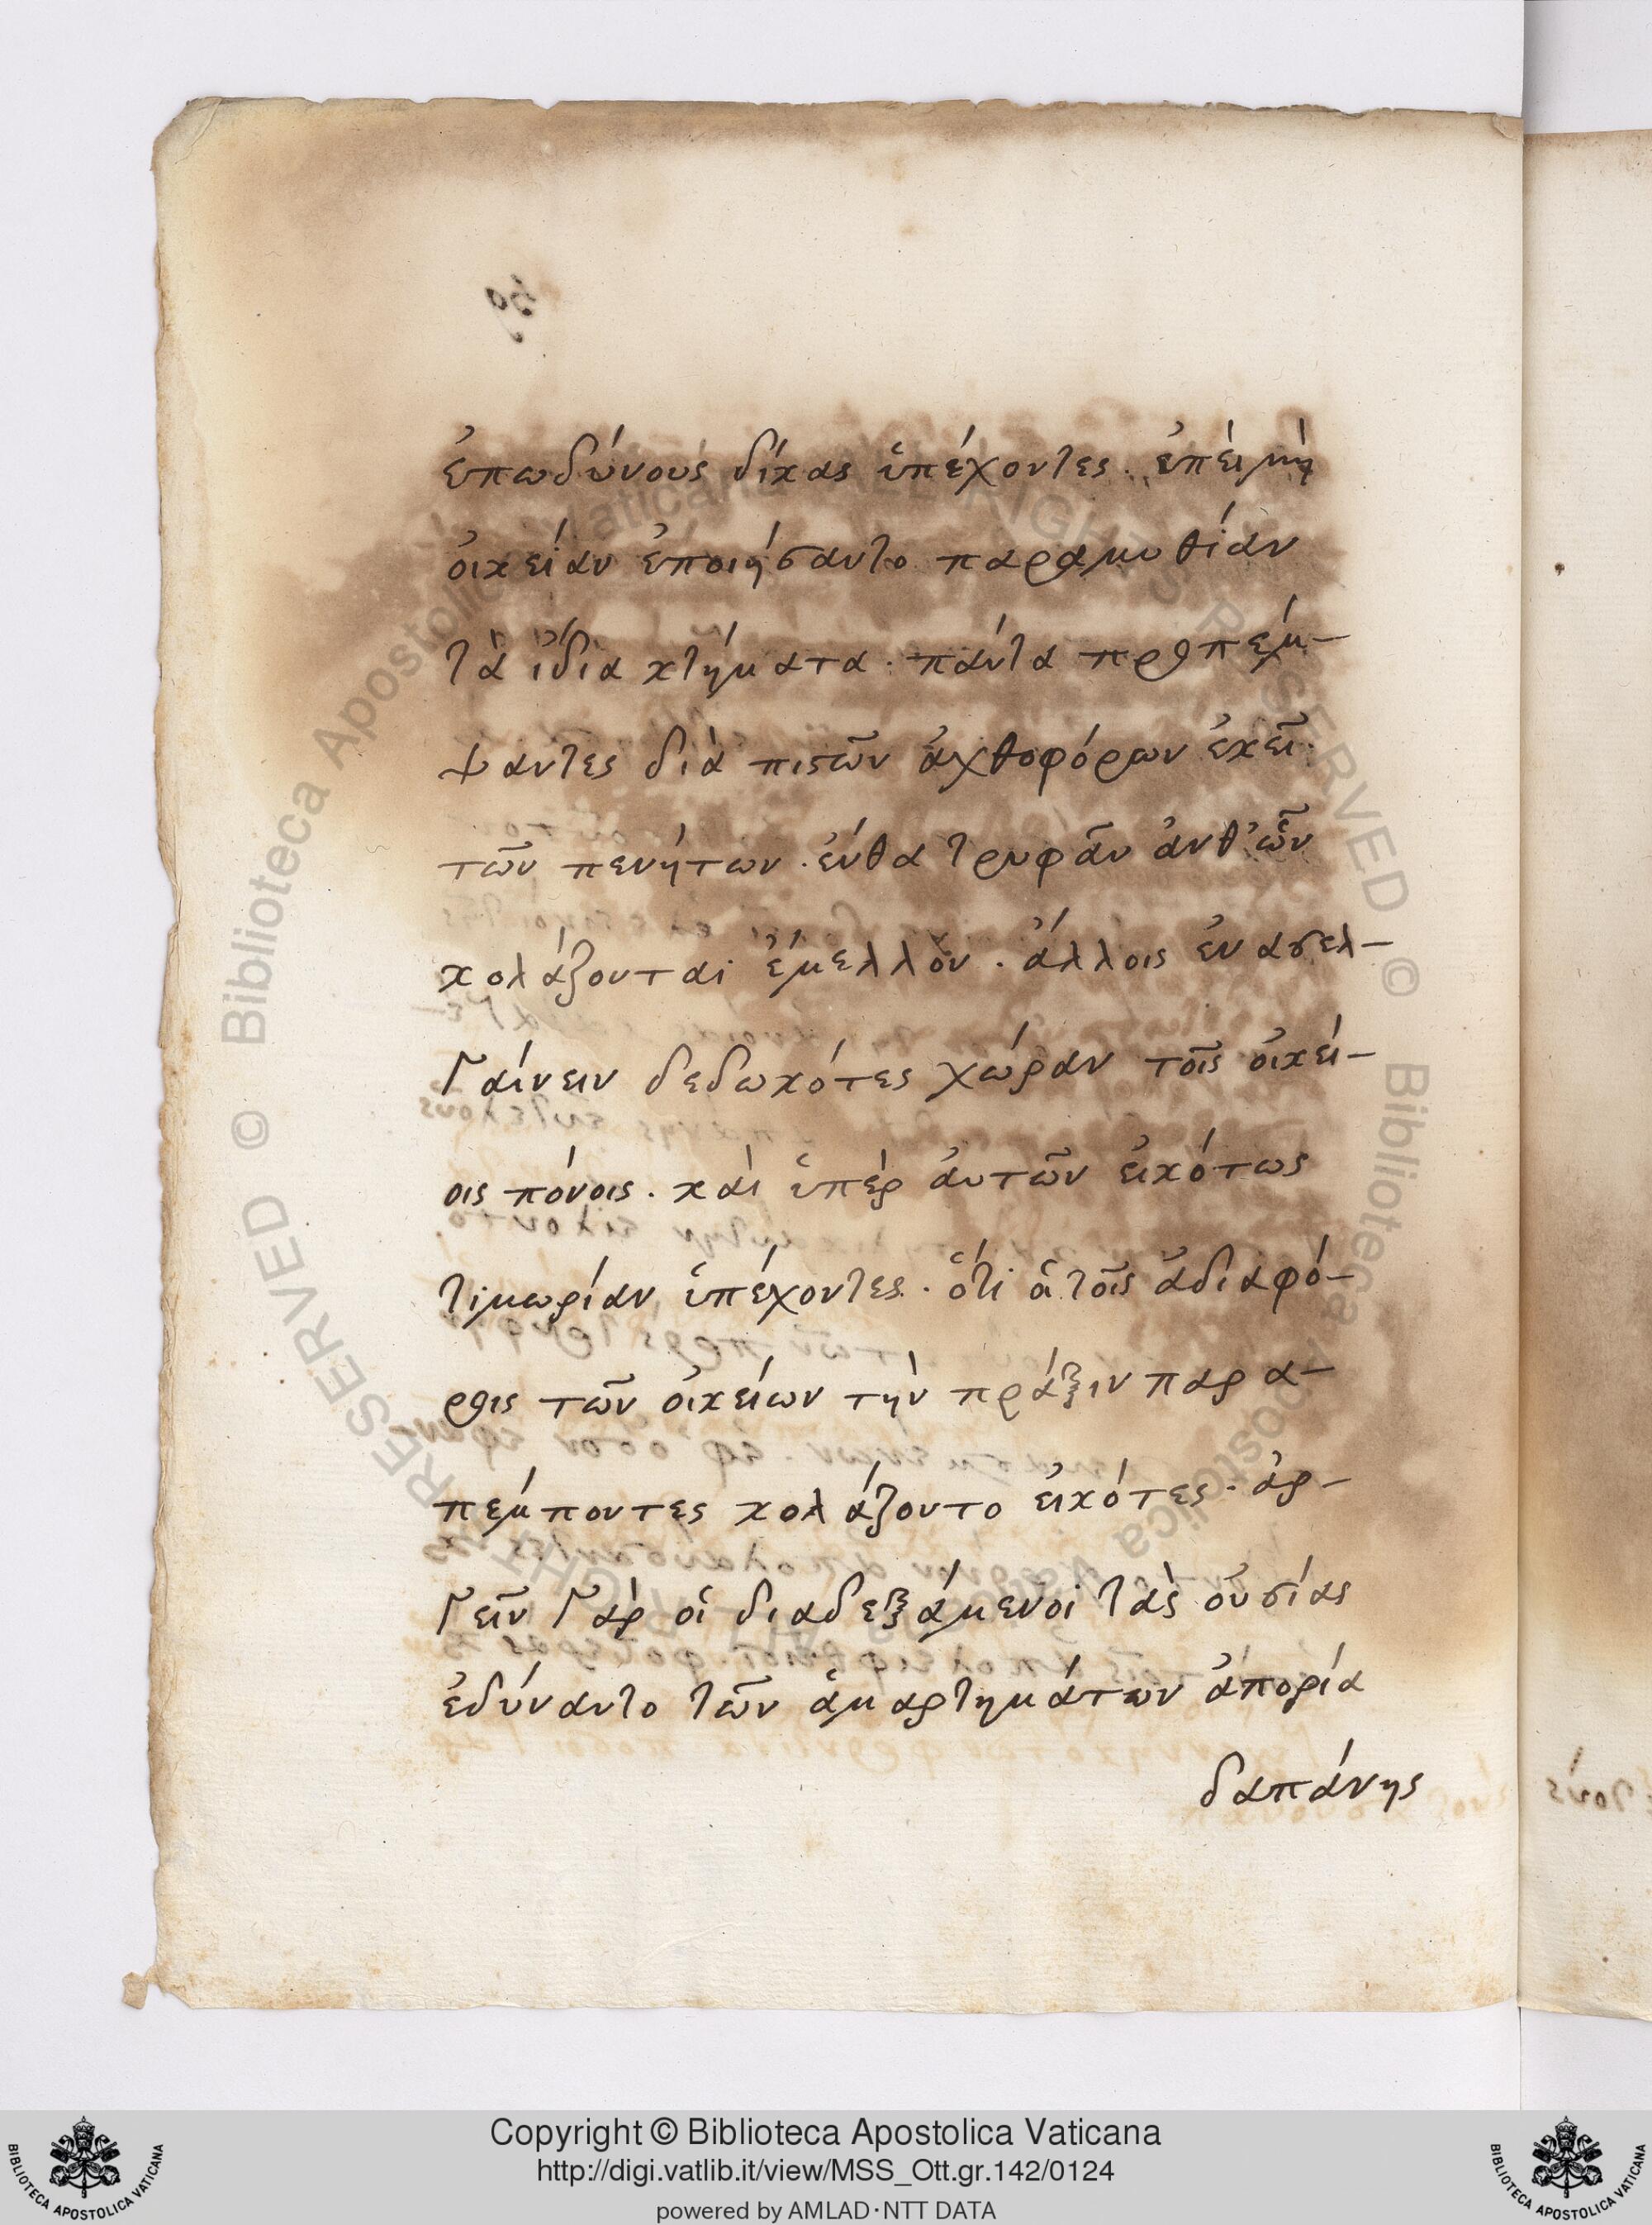 ἐπωδύνους δίκας ὑπέχοντες. ἐπεὶ μὴ
ὀικείαν ἐποιήσαντο παραμυθίαν
τὰ ἴδια κτήματα. πάντα προπέμ-
ψαντες διὰ πιστῶν ἀχθοφόρων ἐκεῖ.
τῶν πενήτων. ἔνθα τρυφᾶν ἀνθ' ὧν
κολάζονται ἔμελλον. ἄλλοις ἐν ασελ-
γαίνειν δεδωκότες χώραν τοῖς ὀικεί-
οις πόνοις. καὶ ὑπὲρ ἀυτῶν ἐικότως
τιμωρίαν ὑπέχοντες. ὅτι ἃ τοῖς ἀδιαφό-
ροις τῶν ὀικείων τὴν πράξιν παρα-
πέμποντες κολάζοντο ἐικότες. ἀρ-
γεῖν γὰρ οἱ διαδεξάμενοι τὰς οὐσίας
ἐδύναντο τῶν ἁμαρτημάτων ἀπορία
δαπάνης
Copyright © Biblioteca Apostolica Vaticana
http://digi.vatlib.it/view/MSS_Ott.gr.142/0124
powered by AMLAD·NTT DATA